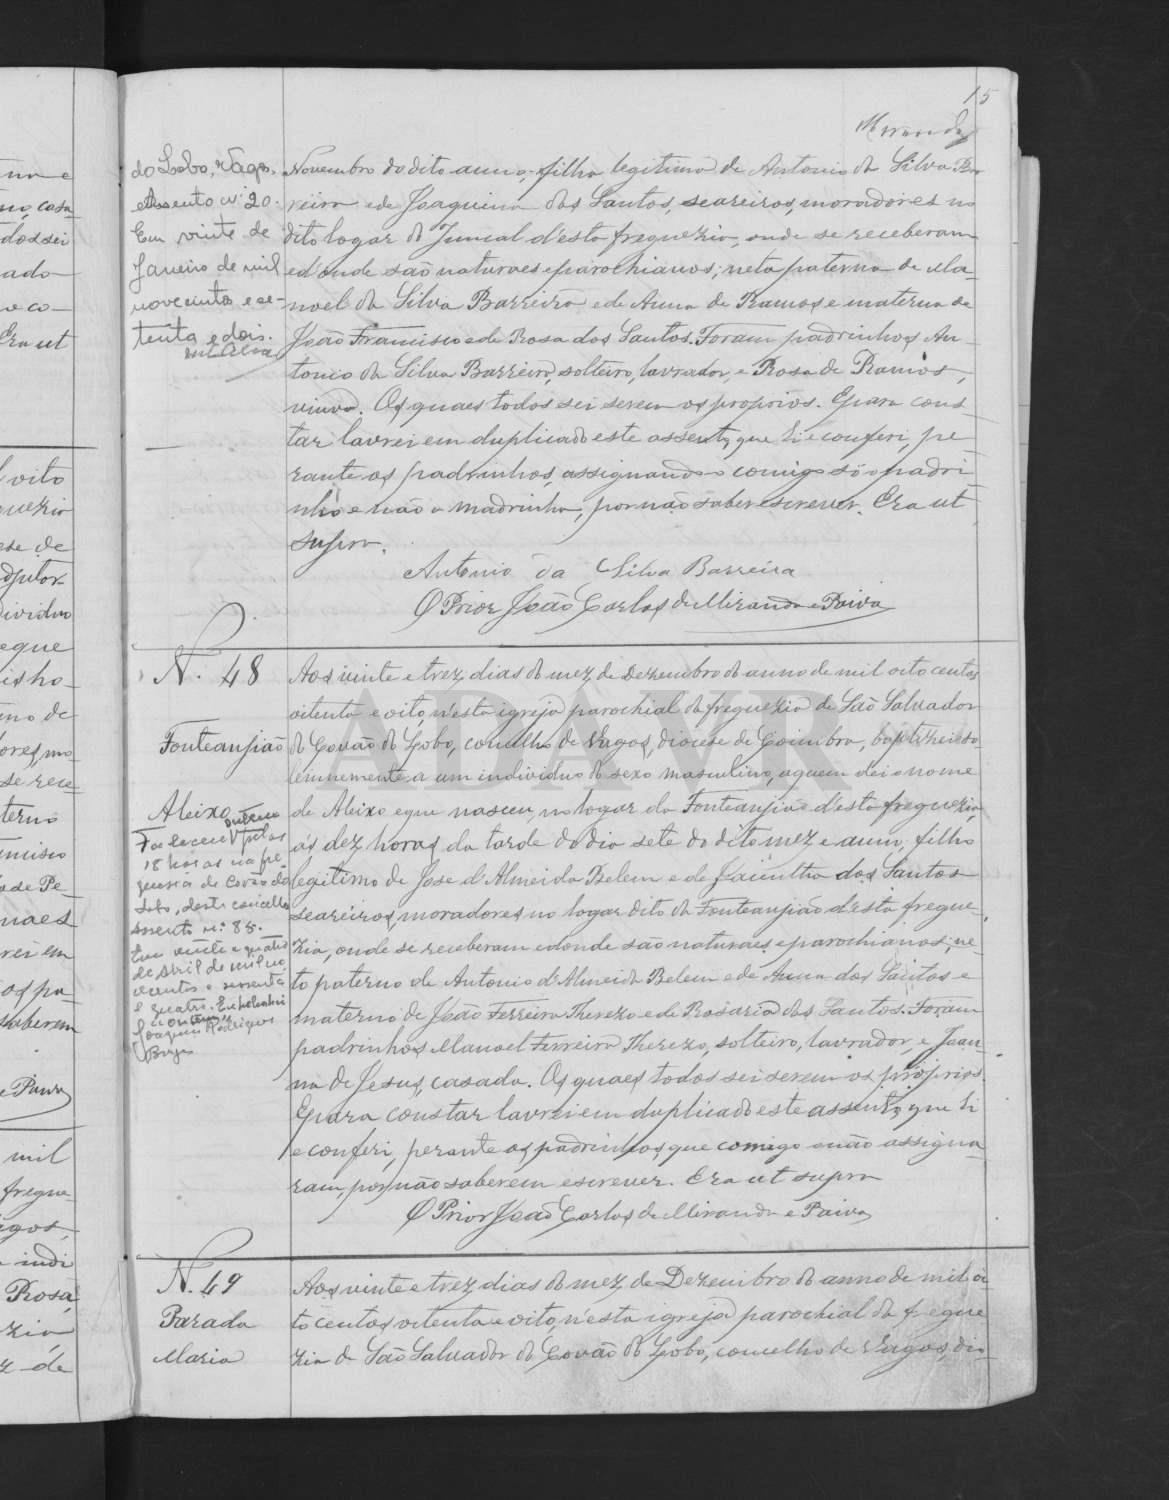 15
Miranda
do Lobo, Vagos.
Assento nº 20.
Em vinte de
Janeiro de mil
novecentos e se-
tenta e dois.
Novembro do dito anno, filha legitima de Antonio da Silva Bar
reira e de Joaquina dos Santos, seareiros, moradores no
dito logar do Juncal d'esta freguezia, onde se receberam
e d'onde são naturaes e parochianos; neta paterna de Ma-
noel da Silva Barreira e de Anna de Ramos e materna de
João Francisco e de Rosa dos Santos. Foram padrinhos An-
tonio da Silva Barreira, solteiro, lavrador, e Rosa de Ramos,
viuva. Os quaes todos sei serem os proprios. E para cons-
tar lavrei em duplicado este assento, que li e conferi, pe
rante os padrinhos, assignando comigo só o padri
nho e não a madrinha, por não saber escrever. Era ut
supra.
Antonio da Silva Barreira
O Prior João Carlos de Miranda e Paiva
N. 48
Fonteanjião
Aleixo
Faleceu pelas
18 horas na fre
guesia de Covão do
Lobo, deste concelho
assento n.º 85.
Em vinte e quatro
de Abril de mil no
vecentos e sessenta
e quatro.
Joaquim Rodrigues
Aos vinte e trez dias do mez de Dezembro do anno de mil oito centos
oitenta e oito, n'esta igreja parochial da freguezia de São Salvador
do Covão do Lobo, concelho de Vagos, diocese de Coimbra, baptizei so-
lemnemente a um individuo do sexo masculino, a quem dei o nome
de Aleixo e que nasceu no logar da Fonteanjião d'esta freguezia,
ás dez horas da tarde do dia sete do dito mez e anno, filho
legitimo de Jose d'Almeida Belem e de Jacintha dos Santos
seareiros, moradores no logar dito da Fonteanjião d'esta fregue-
zia, onde se receberam e donde são naturaes e parochianos; ne-
to paterno de Antonio d'Almeida Belem e de Anna dos Santos e
materno de João Ferreira Therezo e de Rosaria dos Santos. Foram
padrinhos Manoel Ferreira Therezo, solteiro, lavrador, e Joan-
na de Jesus, casada. Os quaes todos sei serem os proprios.
E para constar lavrei em duplicado este assento, que li
e conferi, perante os padrinhos, que comigo não assigna
ram, por não saberem escrever. Era ut supra
O Prior João Carlos de Miranda e Paiva
N. 49
Parada
Maria
Aos vinte e trez dias do mez de Dezembro do anno de mil oi
to centos oitenta e oito, n'esta igreja parochial da fregue
zia de São Salvador do Covão do Lobo, concelho de Vagos, dio-
ADAVR